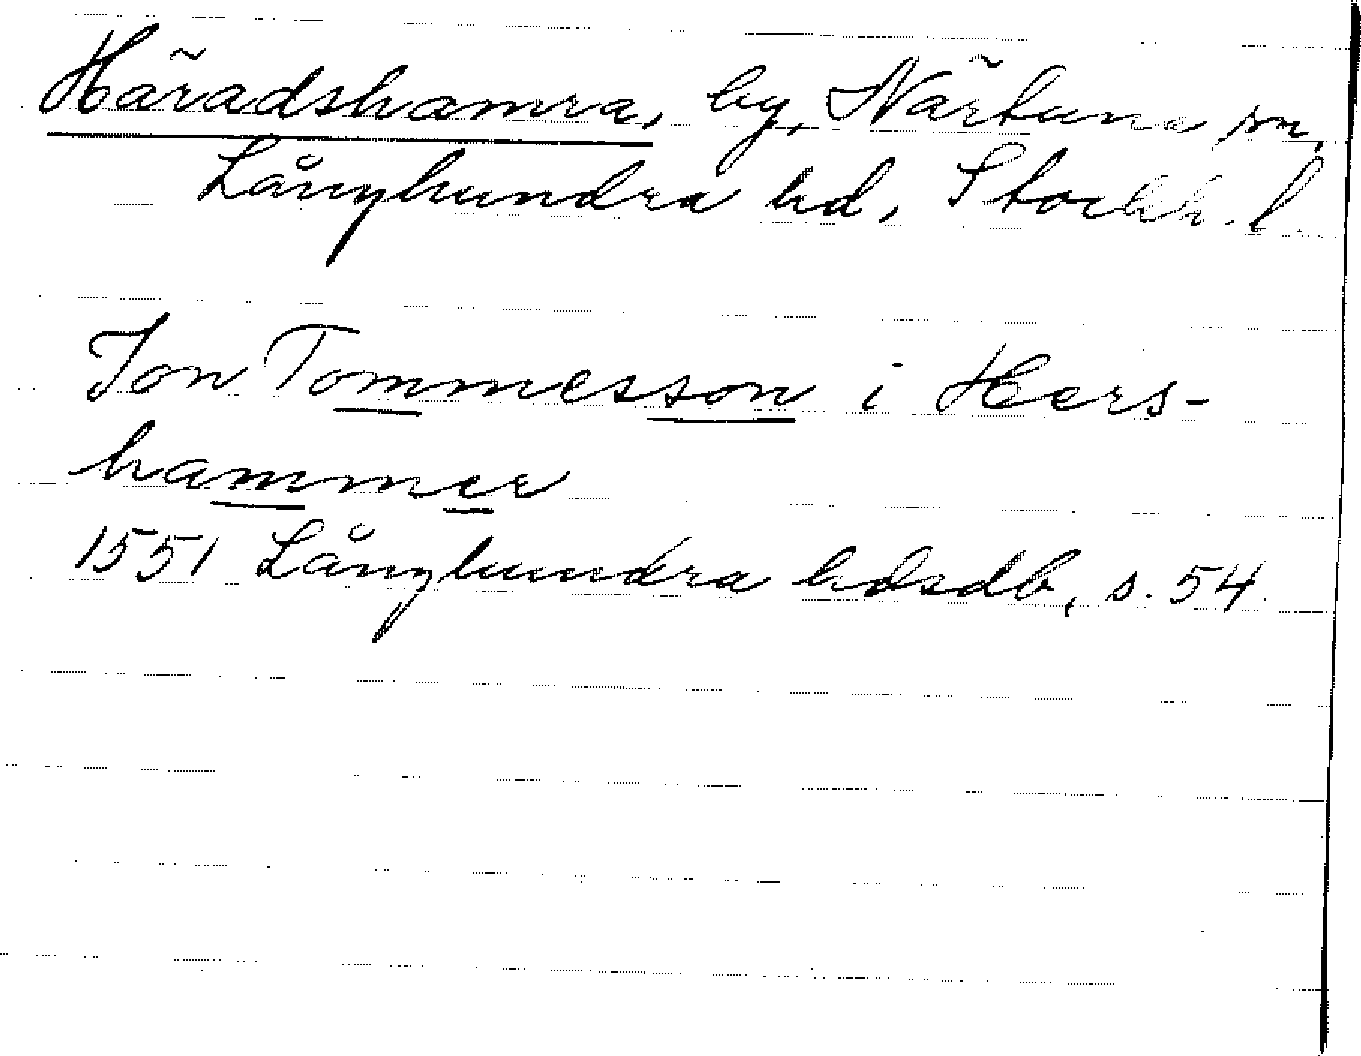 Häradshamra, by, Närtuna sn,
Långhundra hd, Stockh. l.
Jon Tommesson i Hers-
hammer
1551 Långhundra hdsdb, s. 54.